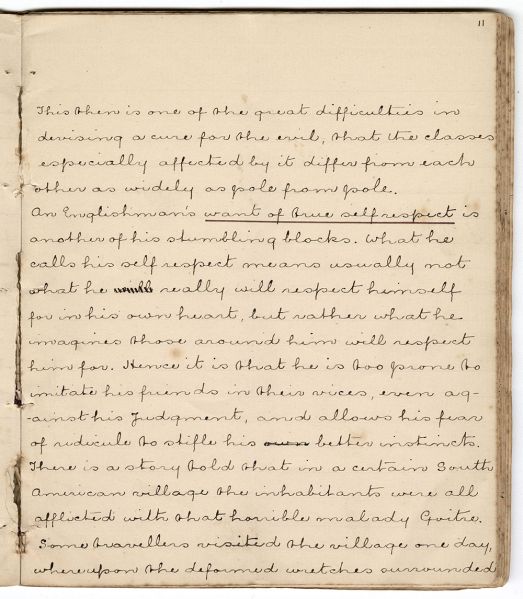 11
This then is one of the great difficulties in
devising a cure for the evil, that the classes
especially affected by it differ from each
other as widely as pole from pole.
An Englishman's want of true self respect is
another of his stumbling blocks. What he
calls his self respect means usually not
what he really will respect himself
for in his own heart, but rather what he
imagines those around him will respect
him for. Hence it is that he is too prone to
imitate his friends in their vices, even ag-
ainst his Judgment, and allows his fear
of ridicule to stifle his own better instincts.
There is a story told that in a certain South
American village the inhabitants were all
afflicted with that horrible malady Goitre.
Some travellers visited the village one day,
whereupon the deformed wretches surrounded